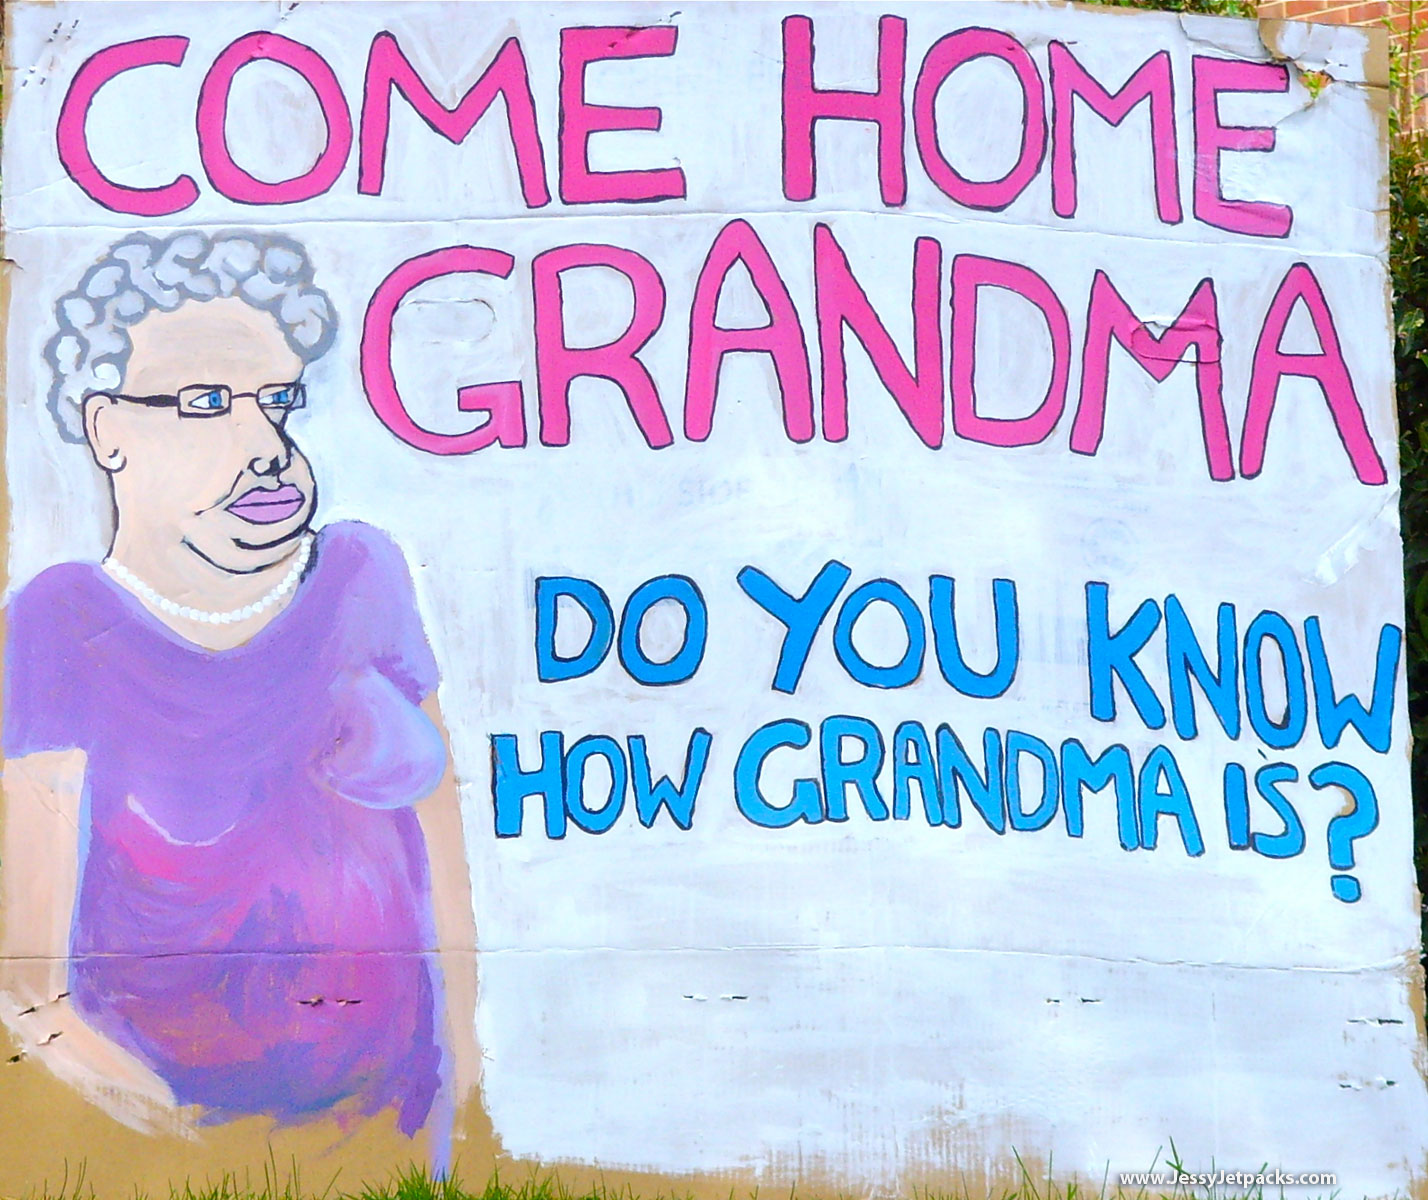 COME HOME
GRANDMA
DO YOU KNOW
HOW GRANDMA IS?
www.JessyJetpacks.com